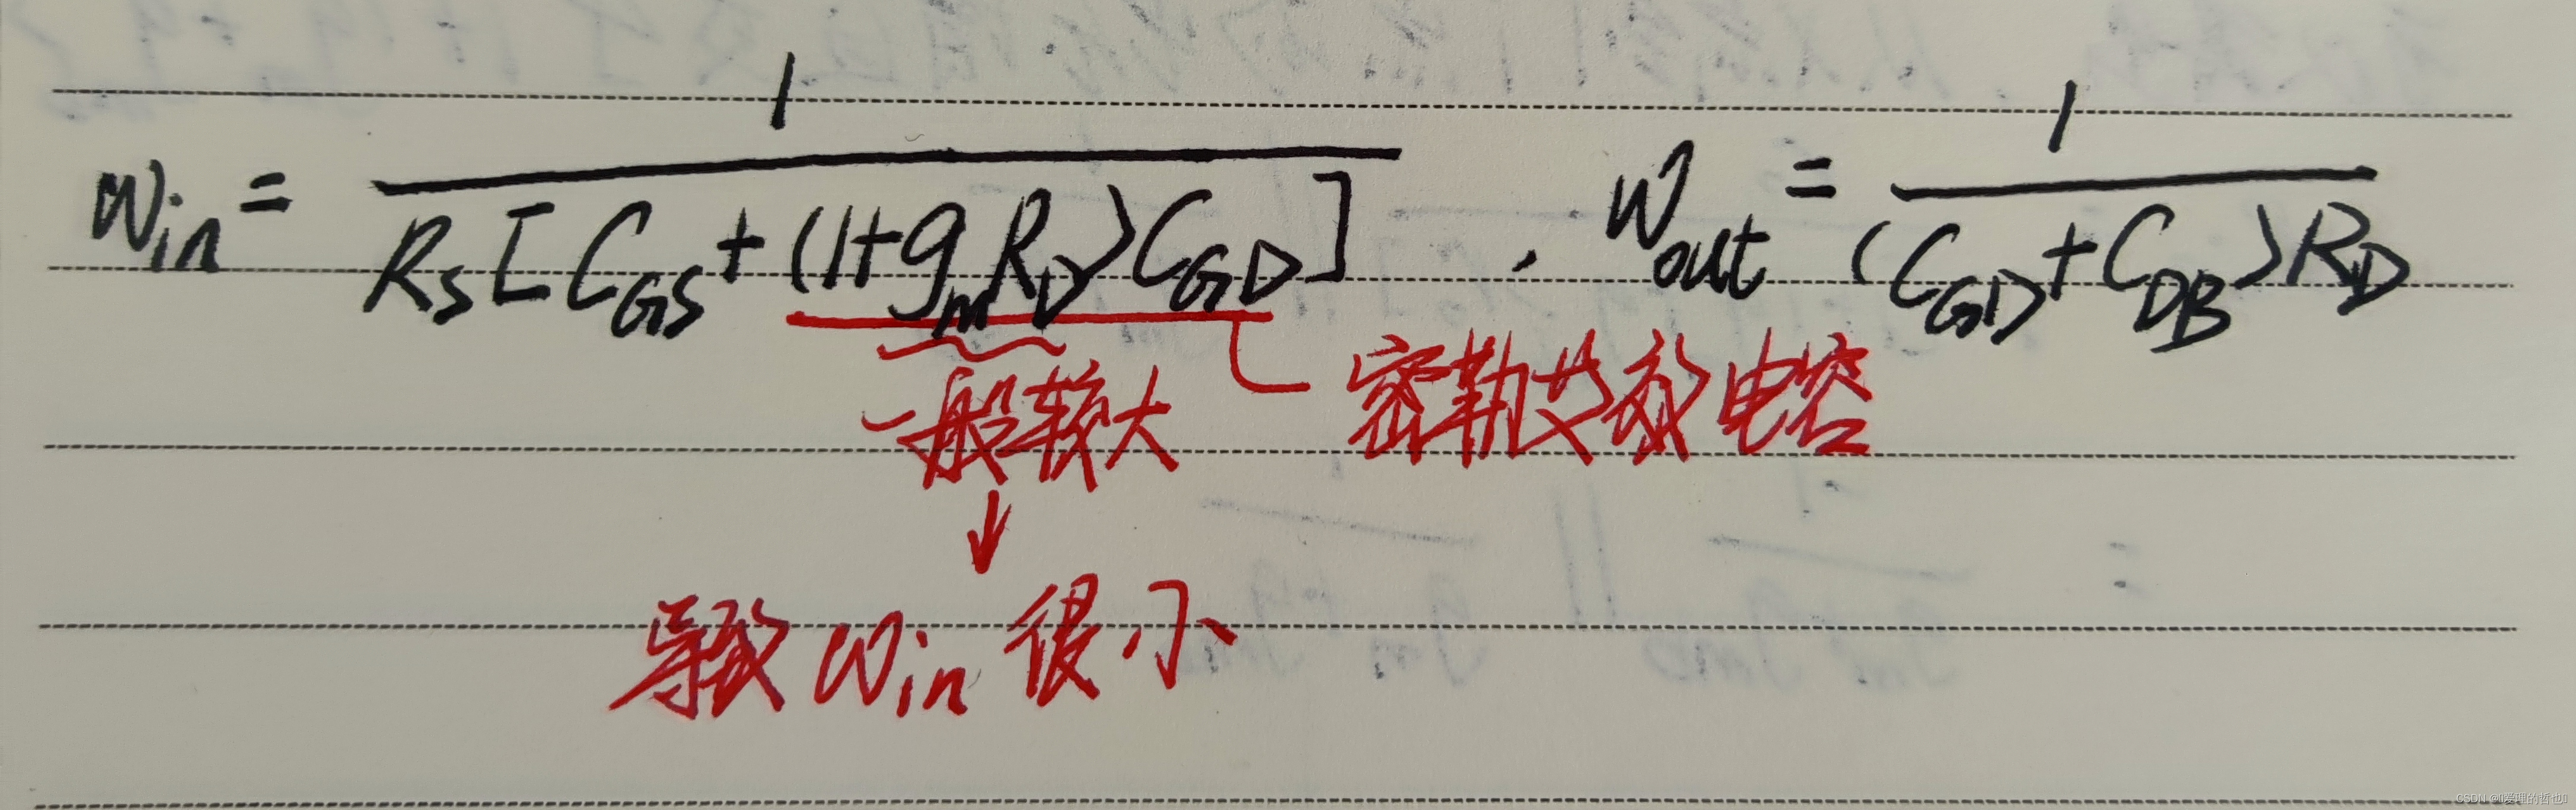 ω_in = 1 / R_S[C_GS + (1+g_m R_D)C_GD] , ω_out = 1 / (C_GD + C_DB)R_D
一般较大 密勒效应电容
导致 ω_in 很小